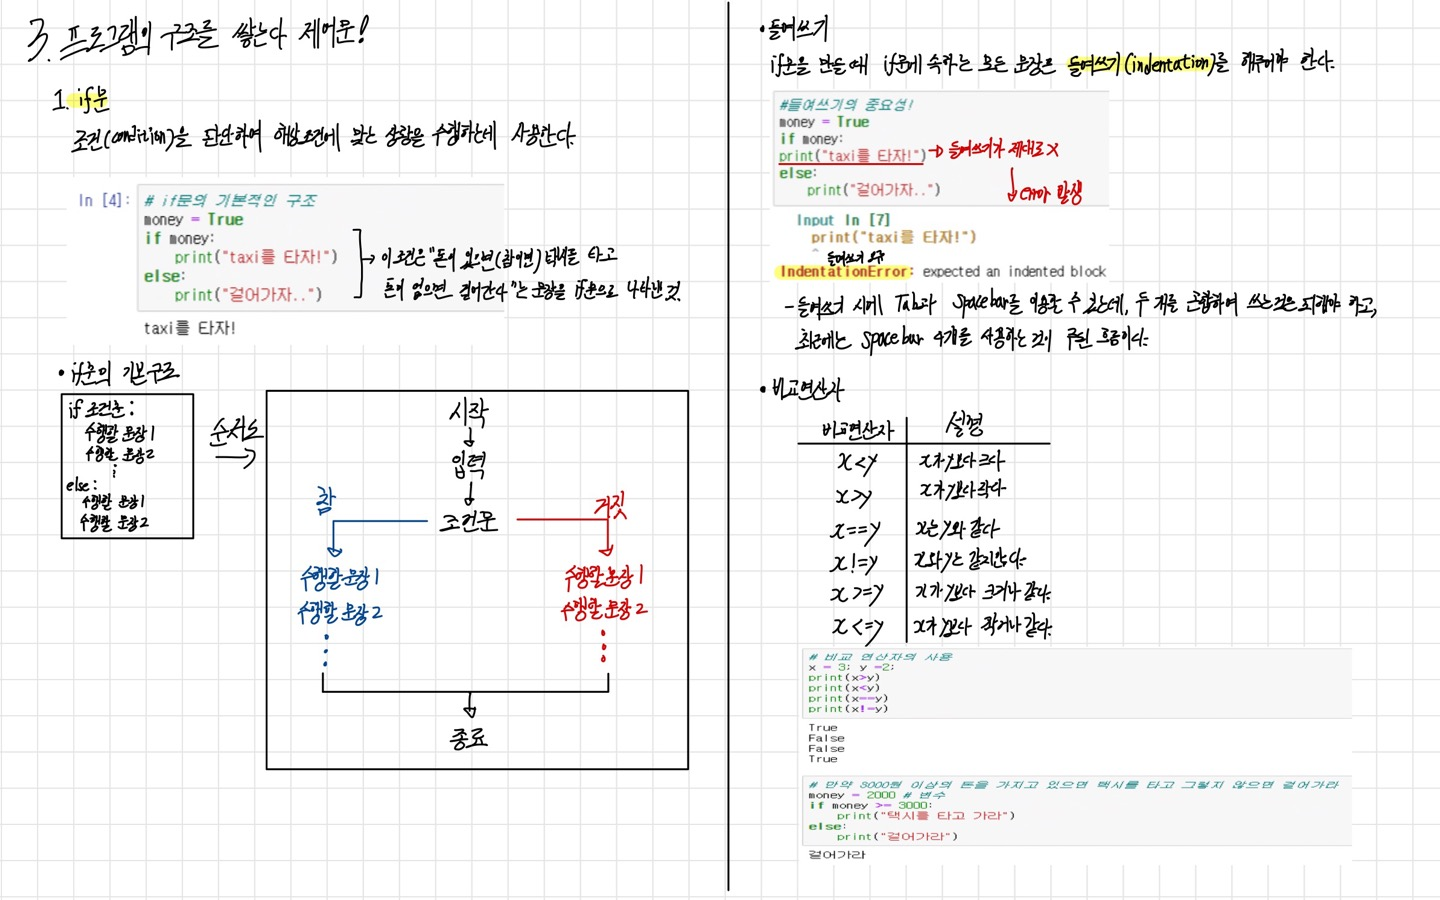 3. 프로그램의 구조를 쌓는다 제어문!
1. if문
조건(condition)을 판단하여 해당 조건에 맞는 상황을 수행하는데 사용한다.
In [4]:
# if문의 기본적인 구조
money = True
if money:
    print("taxi를 타자!")
else:
    print("걸어가자..")
taxi를 타자!
→ 이 조건은 "돈이 있으면(참이면) 택시를 타고
돈이 없으면 걸어간다"는 문장을 if문으로 나타낸 것.
• if문의 기본구조
if 조건문:
수행할 문장1
수행할 문장2
⋮
else:
수행할 문장1
수행할 문장2
순서도
→
시작
↓
입력
↓
조건문
참
수행할 문장1
수행할 문장2
⋮
거짓
수행할 문장1
수행할 문장2
⋮
종료
• 들여쓰기
if문을 만들 때 if문에 속하는 모든 문장은 들여쓰기(indentation)를 해주어야 한다.
#들여쓰기의 중요성!
money = True
if money:
print("taxi를 타자!") → 들여쓰기가 제대로 X
else:
    print("걸어가자..")
↓ error 발생
Input In [7]
    print("taxi를 타자!")
    ^ 들여쓰기 요구
IndentationError: expected an indented block
- 들여쓰기 시에 Tab과 Spacebar를 이용할 수 있는데, 두 개를 혼합하여 쓰는 것은 피해야 하고,
최근에는 Spacebar 4개를 사용하는 것이 주된 흐름이다.
• 비교연산자
비교연산자 | 설명
x<y | x가 y보다 크다
x>y | x가 y보다 작다
x==y | x는 y와 같다
x!=y | x와 y는 같지않다.
x>=y | x가 y보다 크거나 같다.
x<=y | x가 y보다 작거나 같다.
# 비교 연산자의 사용
x = 3; y =2;
print(x>y)
print(x<y)
print(x==y)
print(x!=y)
True
False
False
True
# 만약 3000원 이상의 돈을 가지고 있으면 택시를 타고 그렇지 않으면 걸어가라
money = 2000 # 변수
if money >= 3000:
    print("택시를 타고 가라")
else:
    print("걸어가라")
걸어가라